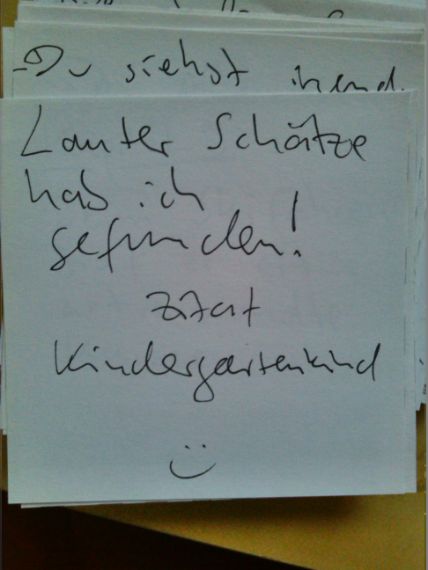 - Du siehst
Lauter Schätze
hab ich
gefunden!
Zitat
Kindergartenkind